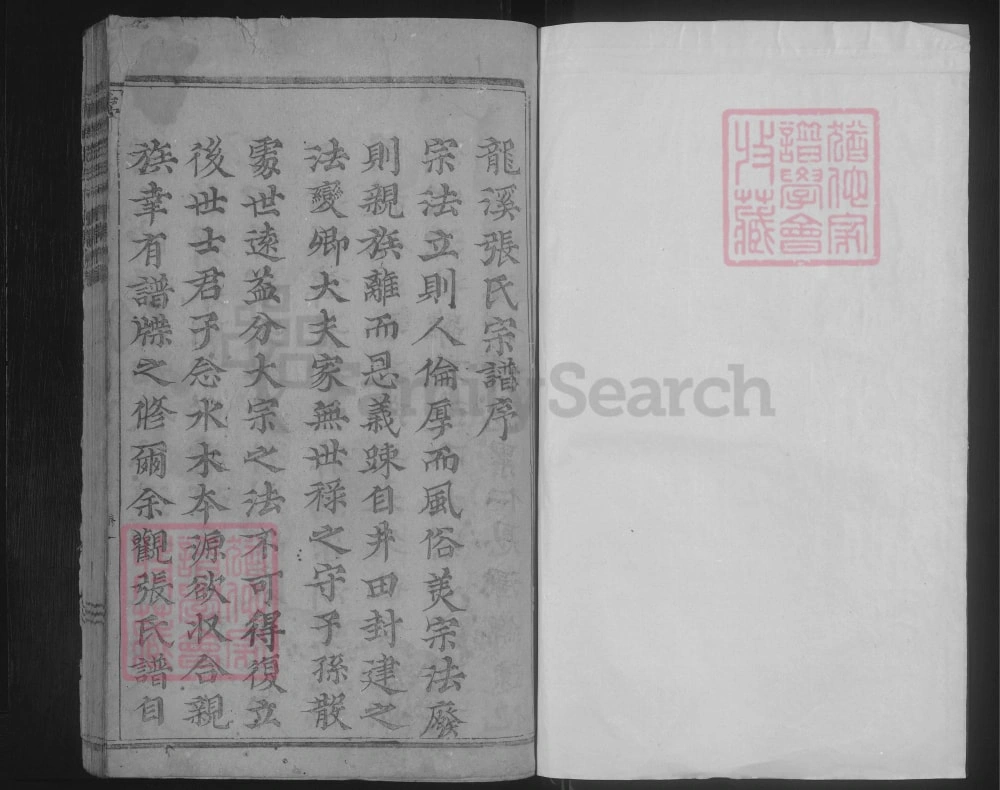 龍溪張氏宗譜序
宗法立則人倫厚而風俗美宗法廢
則親族離而恩義踈自井田封建之
法變卿大夫家無世祿之守子孫散
處世遠益分大宗之法不可得復立
後世士君子念水木本源欲収合親
族幸有譜牒之修爾余觀張氏譜自
猶他家
譜學會
收藏
FamilySearch